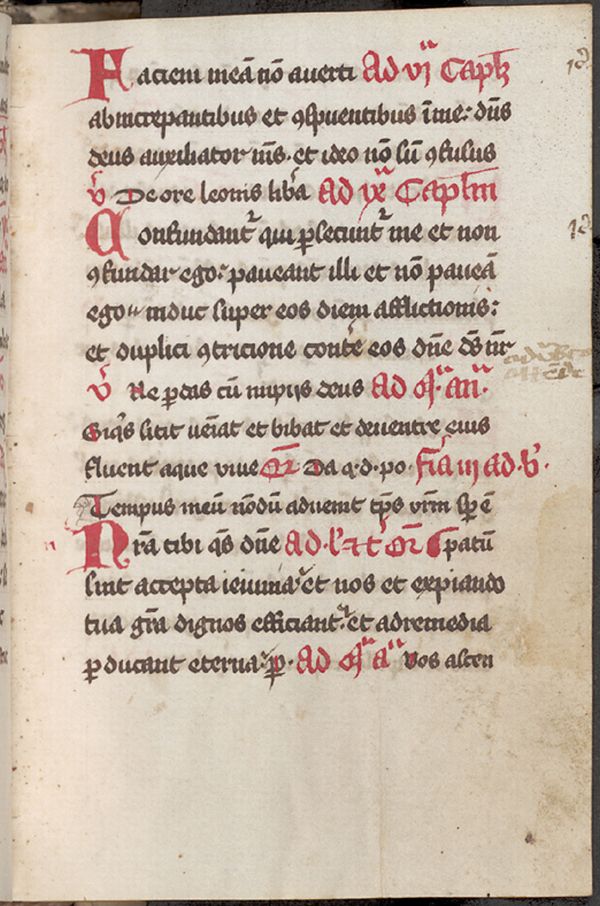 Faciem meā nō averti Ad vi Capł
ab increpantibus et ꝯspuentibus ī me: dn̄s
deus auxiliator m̄s. et ideo nō sū ꝯfusus
v̄ De ore leonis lib̄a Ad ix Capłm
Confundantʳ qui ꝑsecuntʳ me et non
ꝯfundar ego: paveant illi et nō paveā
ego induc super eos diem afflictionis:
et duplici ꝯtricione contʳe eos dn̄e ds̄ nr̄
v̄ Ne ꝑdas cū impijs deus Ad mᵃ. an̄.
Siq̄s sitit veīat et bibat et deventre eius
fluent aque vive Or̄ Da q. d. po. Fīa iij ad. b̄.
Tempus meū nōdū advenit tp̄s vr̄m sp̄ ē
Nr̄a tibi qs̄ dn̄e ad. b̄. ⁊ t̄ Or̄ patū
sint accepta ieiunia et nos et expiando
tua gr̄a dignos efficiantʳ. et ad remedia
ꝑducant eterna ꝑ. Ad mᵃ aᵃ Vos ascen